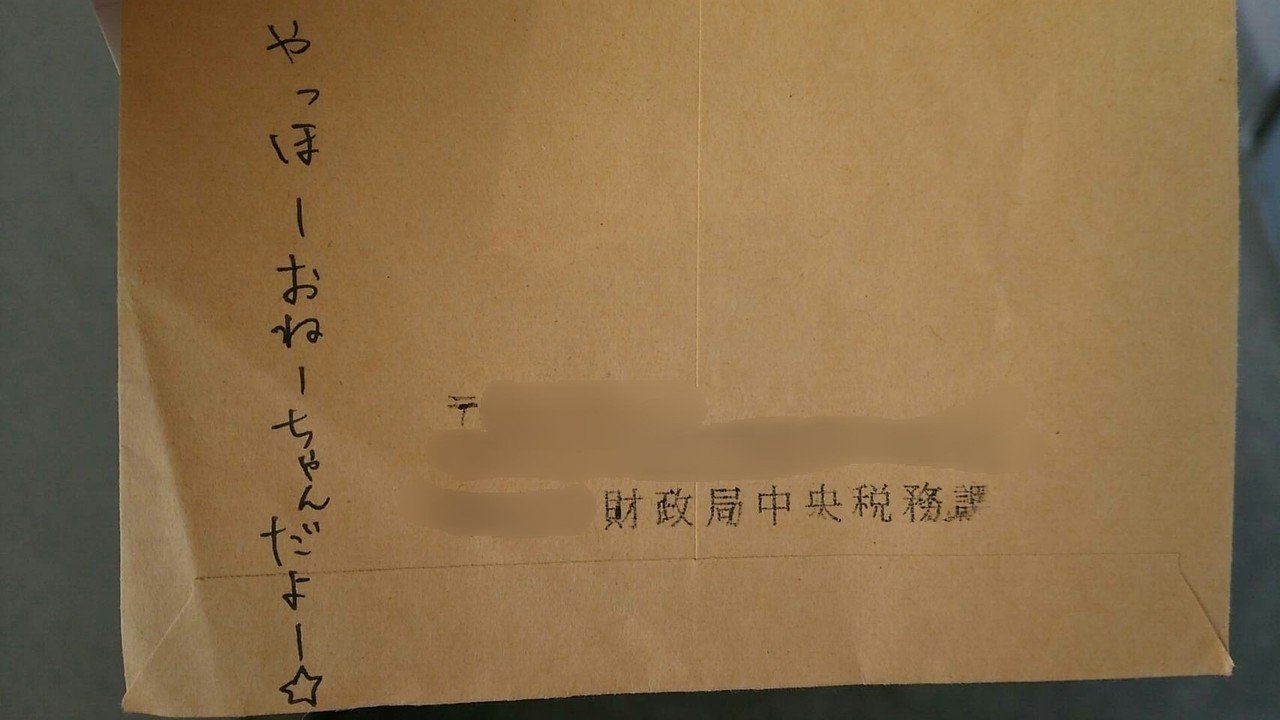 やっほーおねーちゃんだよー☆
〒
財政局中央税務課